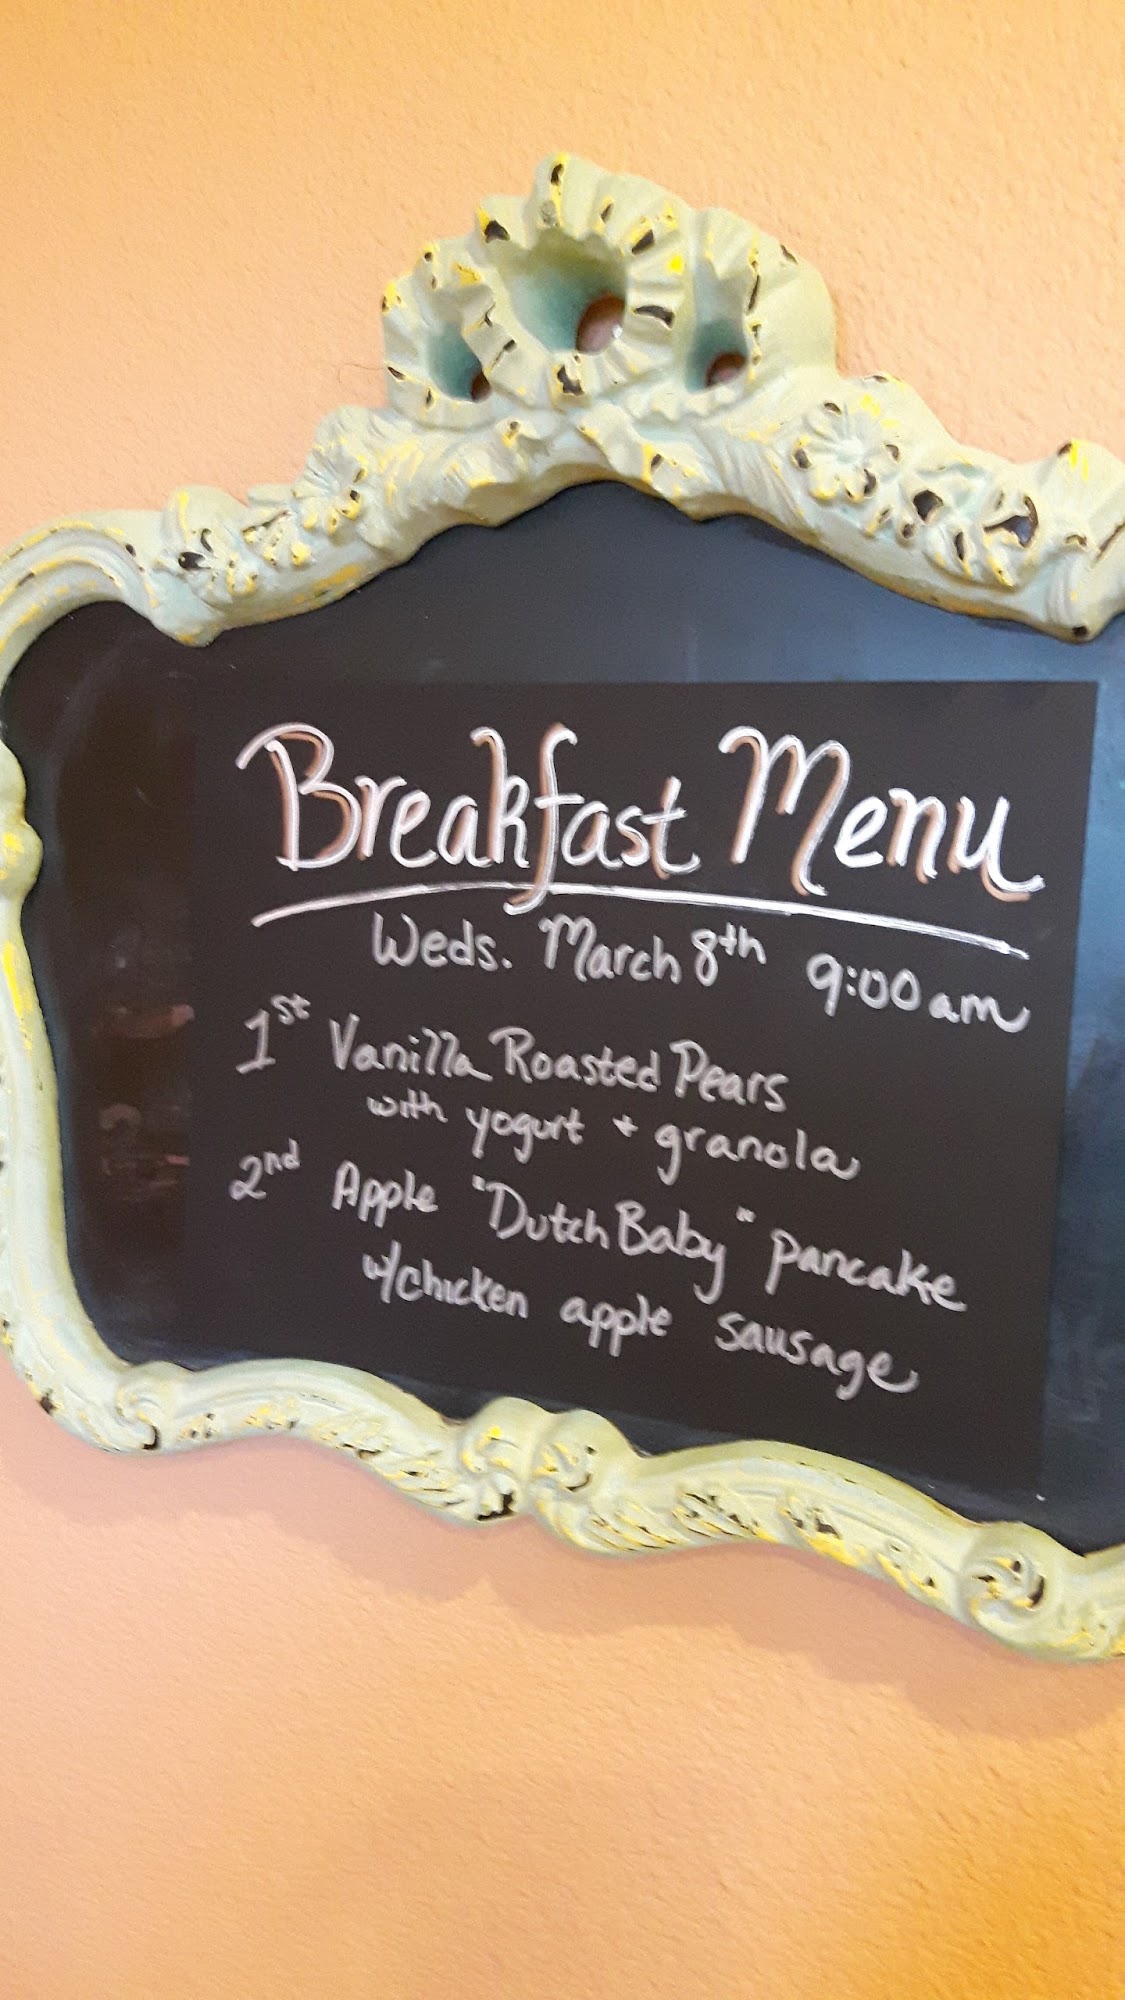 Breakfast Menu
Weds. March 8th 9:00am
1st Vanilla Roasted Pears
with yogurt + granola
2nd Apple "Dutch Baby" pancake
w/chicken apple sausage